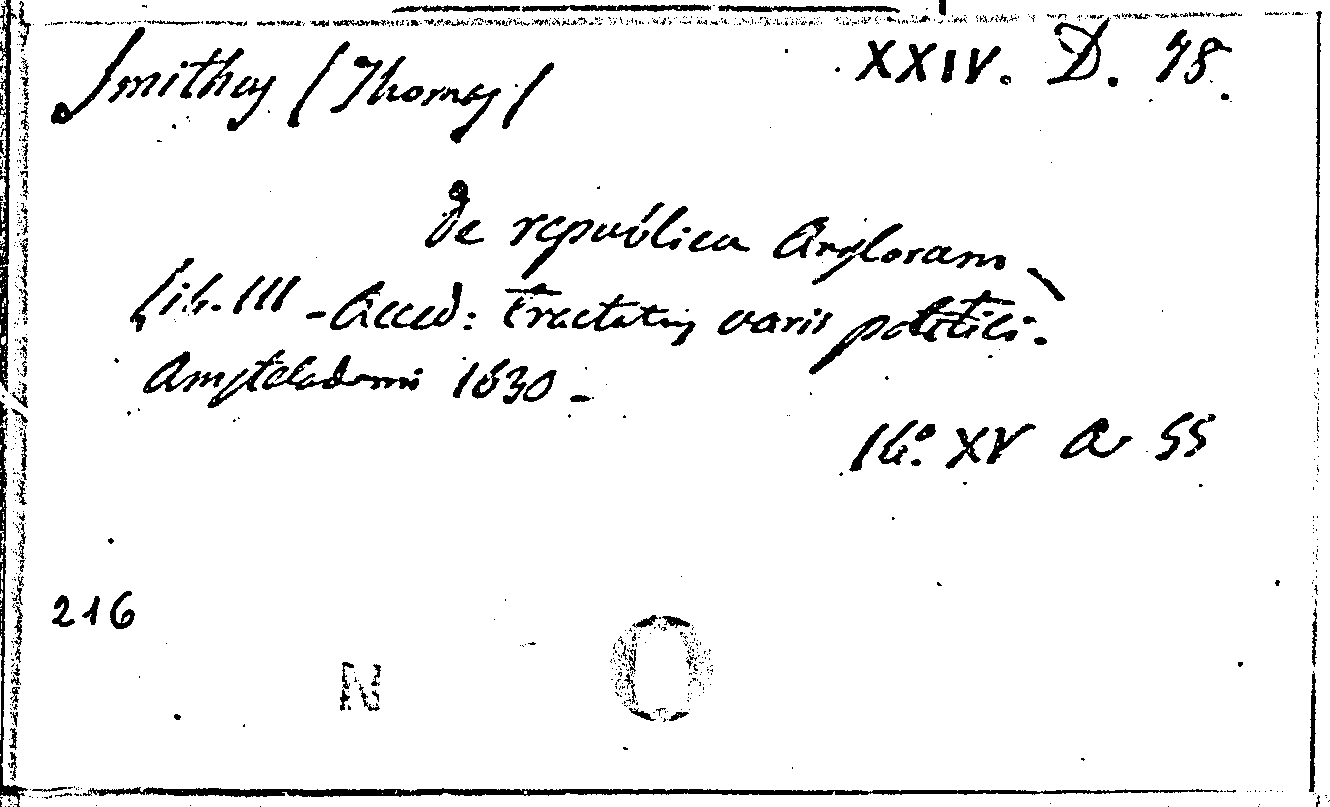 Smithus (Thomas) XXIV. D. 48.
De republica Anglorum
Lib. III - Acced: Tractatus varii politici.
Amstelodami 1630 -
16º. XV a 55
216
N O